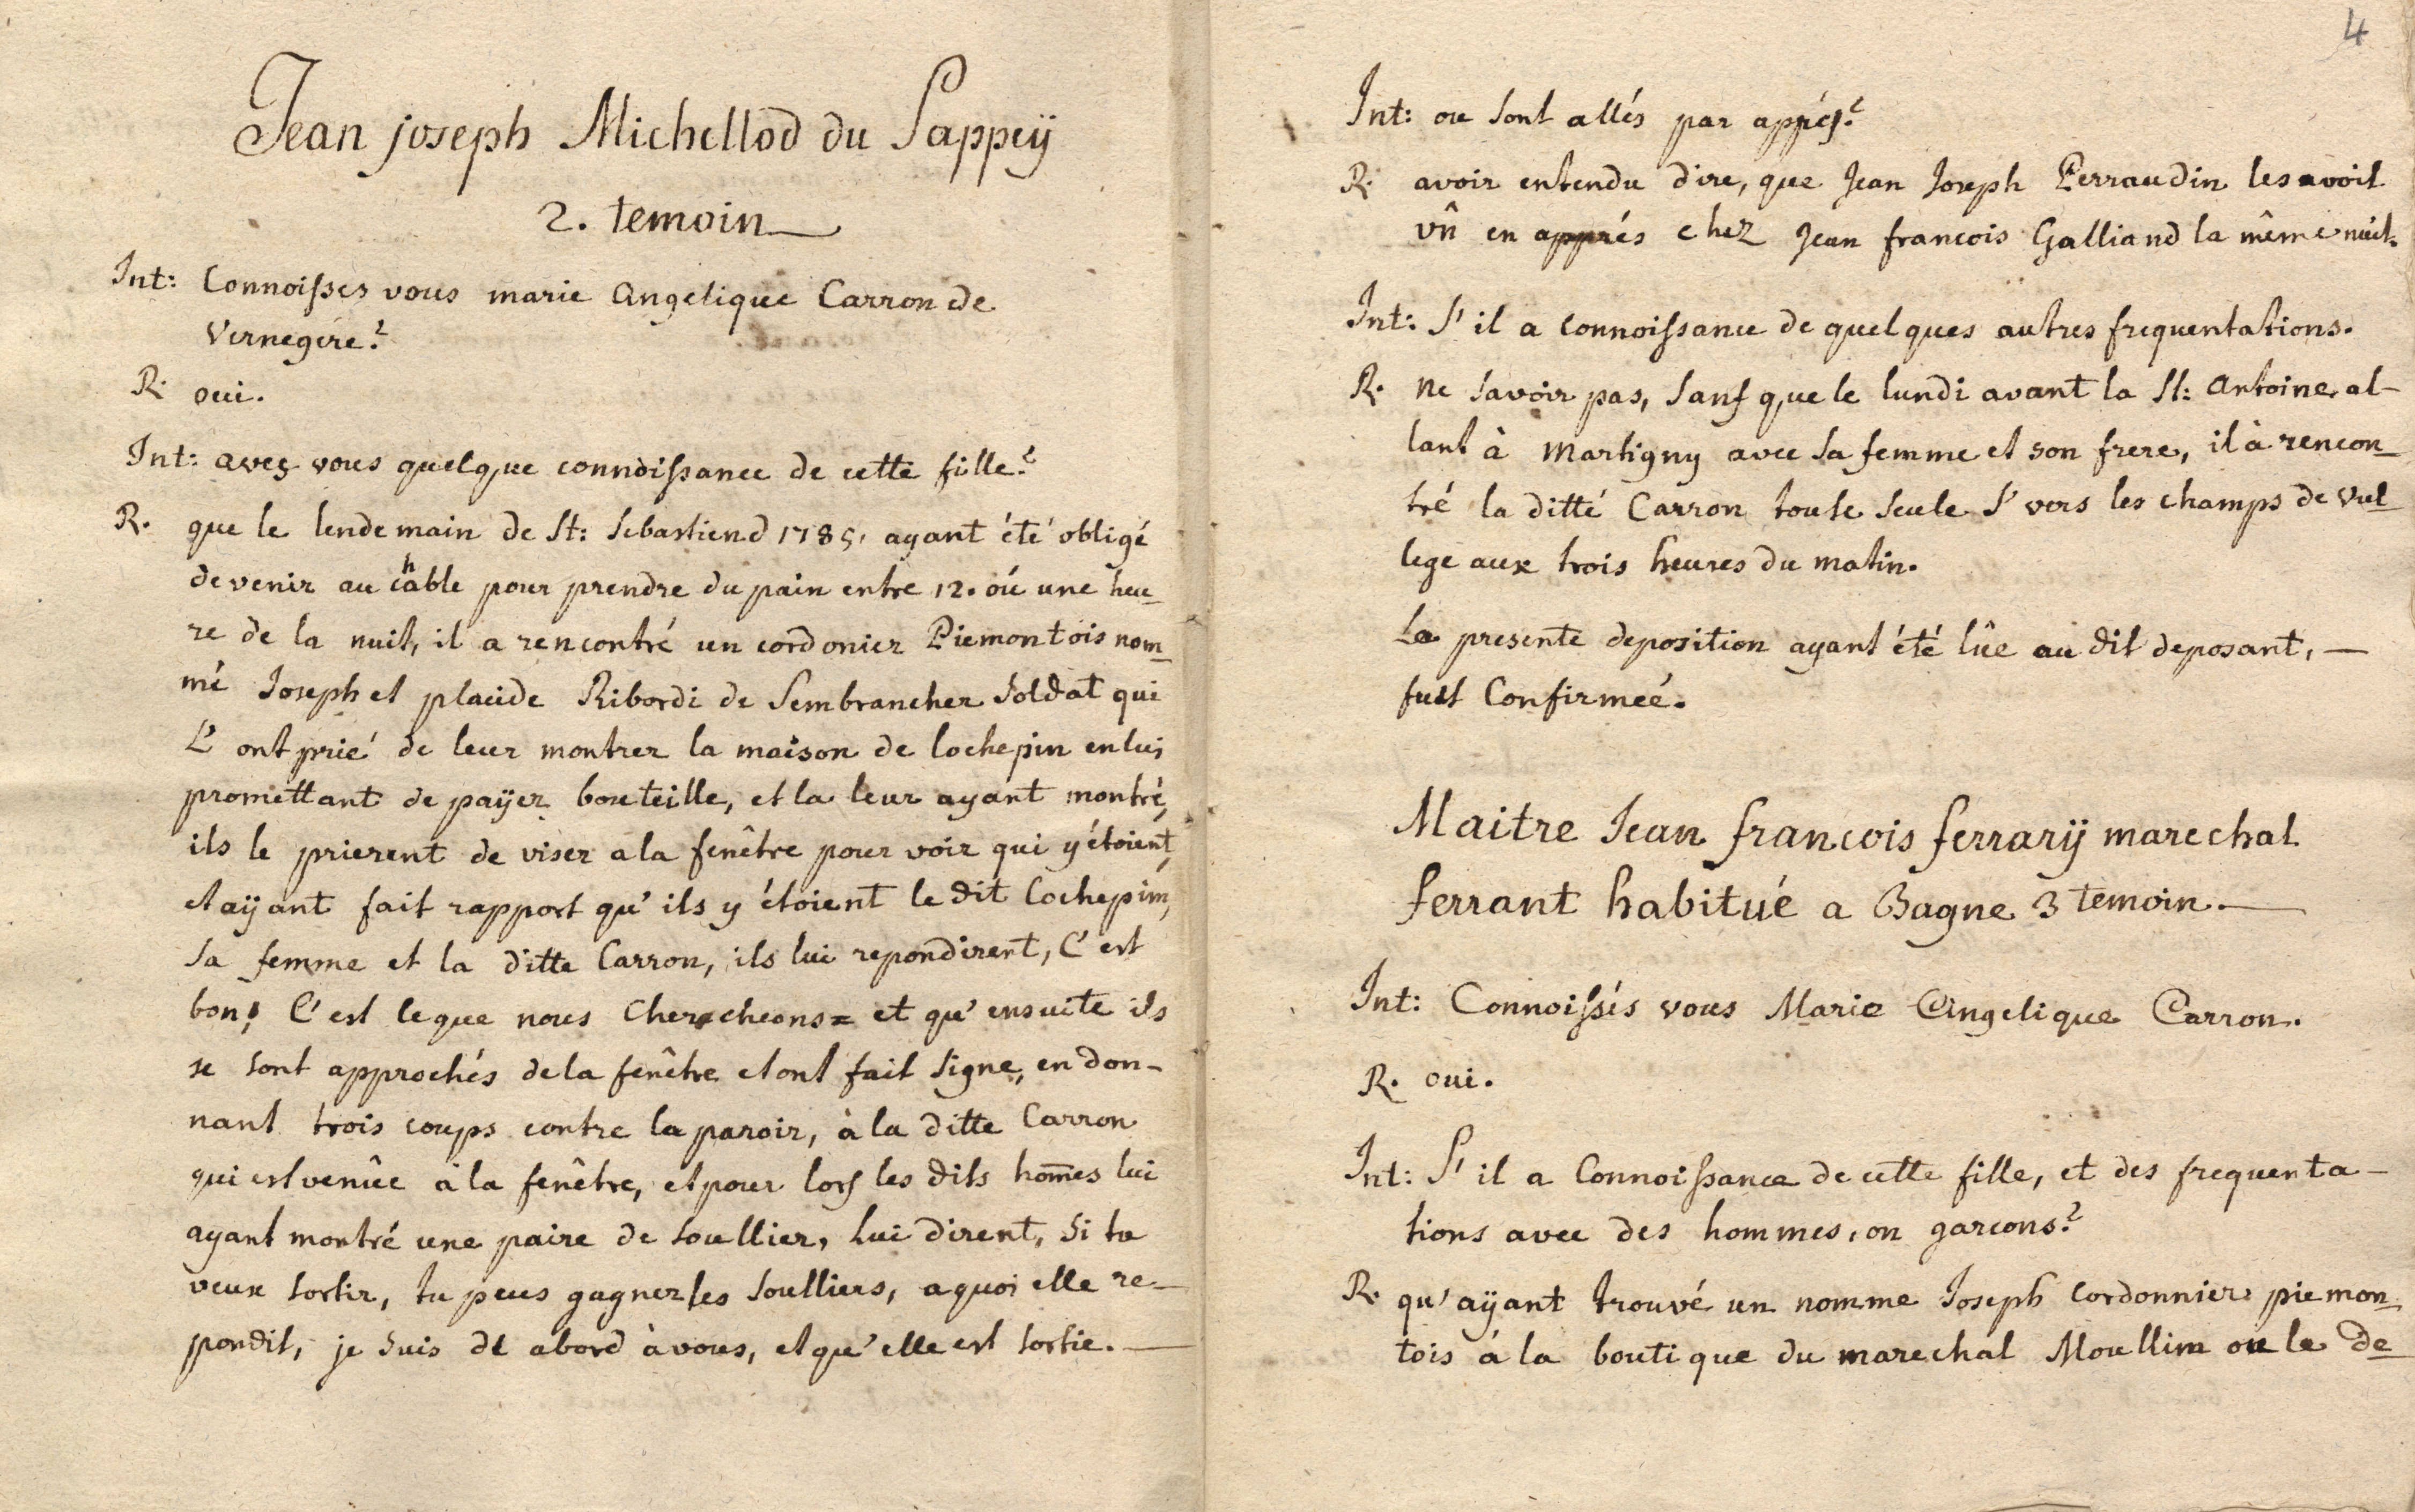 Jean joseph Michellod du Sappeÿ
2. temoin
Int: Connoisses vous marie Angelique Carron de
Vernegere?
R. oui.
Int: aves vous quelque connoissance de cette fille?
R. que le lendemain de St: Sebastiend 1785, ayant été obligé
de venir au chable pour prendre du pain entre 12. oú une heu-
re de la nuit, il a rencontré un cordonier Piemontois nom-
mé Joseph et placide Ribordi de Sembrancher Soldat qui
L'ont prié de leur montrer la maison de Cochepin en lui
promettant de païer bouteille, et la leur ayant montré,
ils le prierent de viser a la fenêtre pour voir qui y étoient,
et aÿant fait rapport qu'ils y étoient le dit Cochepin,
sa femme et la ditte Carron, ils lui repondirent, C'est
bon! C'est ce que nous Chercheons= et qu'ensuite ils
se sont approchés de la fenêtre et ont fait signe, en don-
nant trois coups contre la paroir, à la ditte Carron
qui est venûe à la fenêtre, et pour lors les dits hom̄es lui
ayant montré une paire de soullier, lui dirent, si tu
veux sortir, tu peus gagner les soulliers, a quoi elle re-
pondit, je suis de abord à vous, et qu'elle est sortie.
4
Int: ou sont allés par appés?
R. avoir entendu dire, que Jean Joseph Perraudin les avoit
vû en apprés chez Jean francois Galliand la même nuit.
Int: S'il a connoissance de quelques autres frequentations.
R. ne savoir pas, sauf que le lundi avant la St: Antoine al-
lant à Martigny avec sa femme et son frere, il à rencon-
tré la ditté Carron toute seule s'vers les champs de Vol-
lege aux trois heures du matin.
La presente deposition ayant été lûe au dit deposant,
fust Confirmeé.
Maitre Jean francois ferrarÿ marechal
ferrant habitué a Bagne 3 temoin.
Int: Connoissés vous Marie Angelique Carron.
R. oui.
Int: S'il a Connoissance de cette fille, et des frequenta-
tions avec des hommes, ou garcons?
R. qu'aÿant trouvé un nomme Joseph Cordonnier piemon-
tois á la boutique du marechal Moullim ou le de-